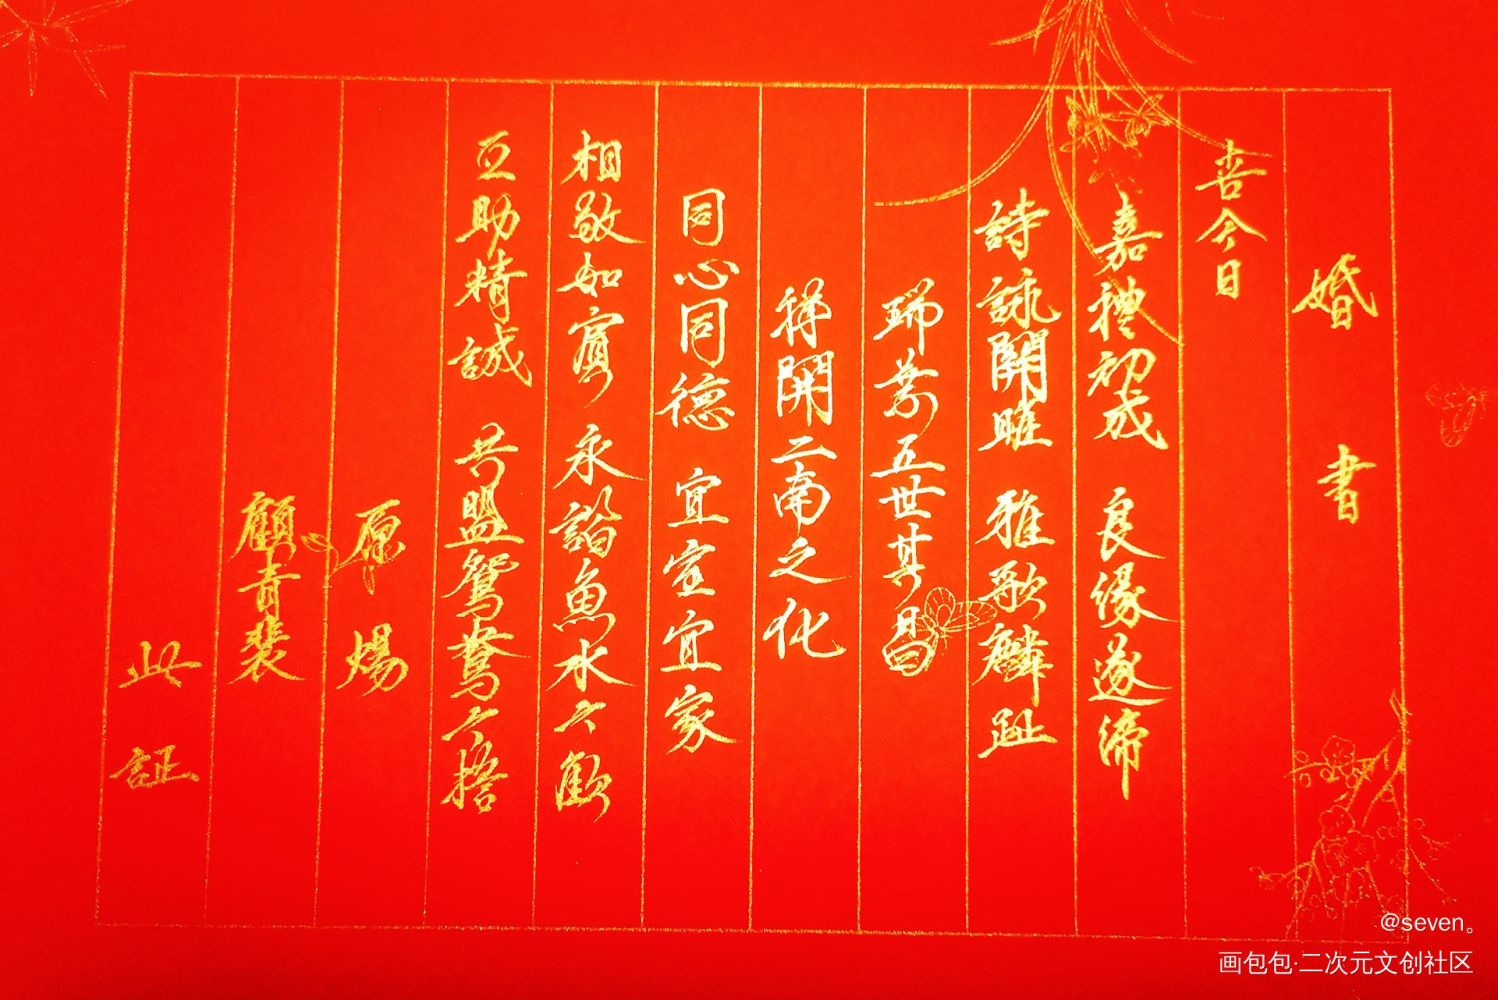 婚書
喜今日
嘉禮初成 良緣遂締
詩詠關雎 雅歌麟趾
瑞葉五世其昌
祥開二南之化
同心同德 宜室宜家
相敬如賓 永諧魚水之歡
互助精誠 共盟鴛鴦之誓
原煬
顧青裴
此証
@seven。
画包包·二次元文创社区